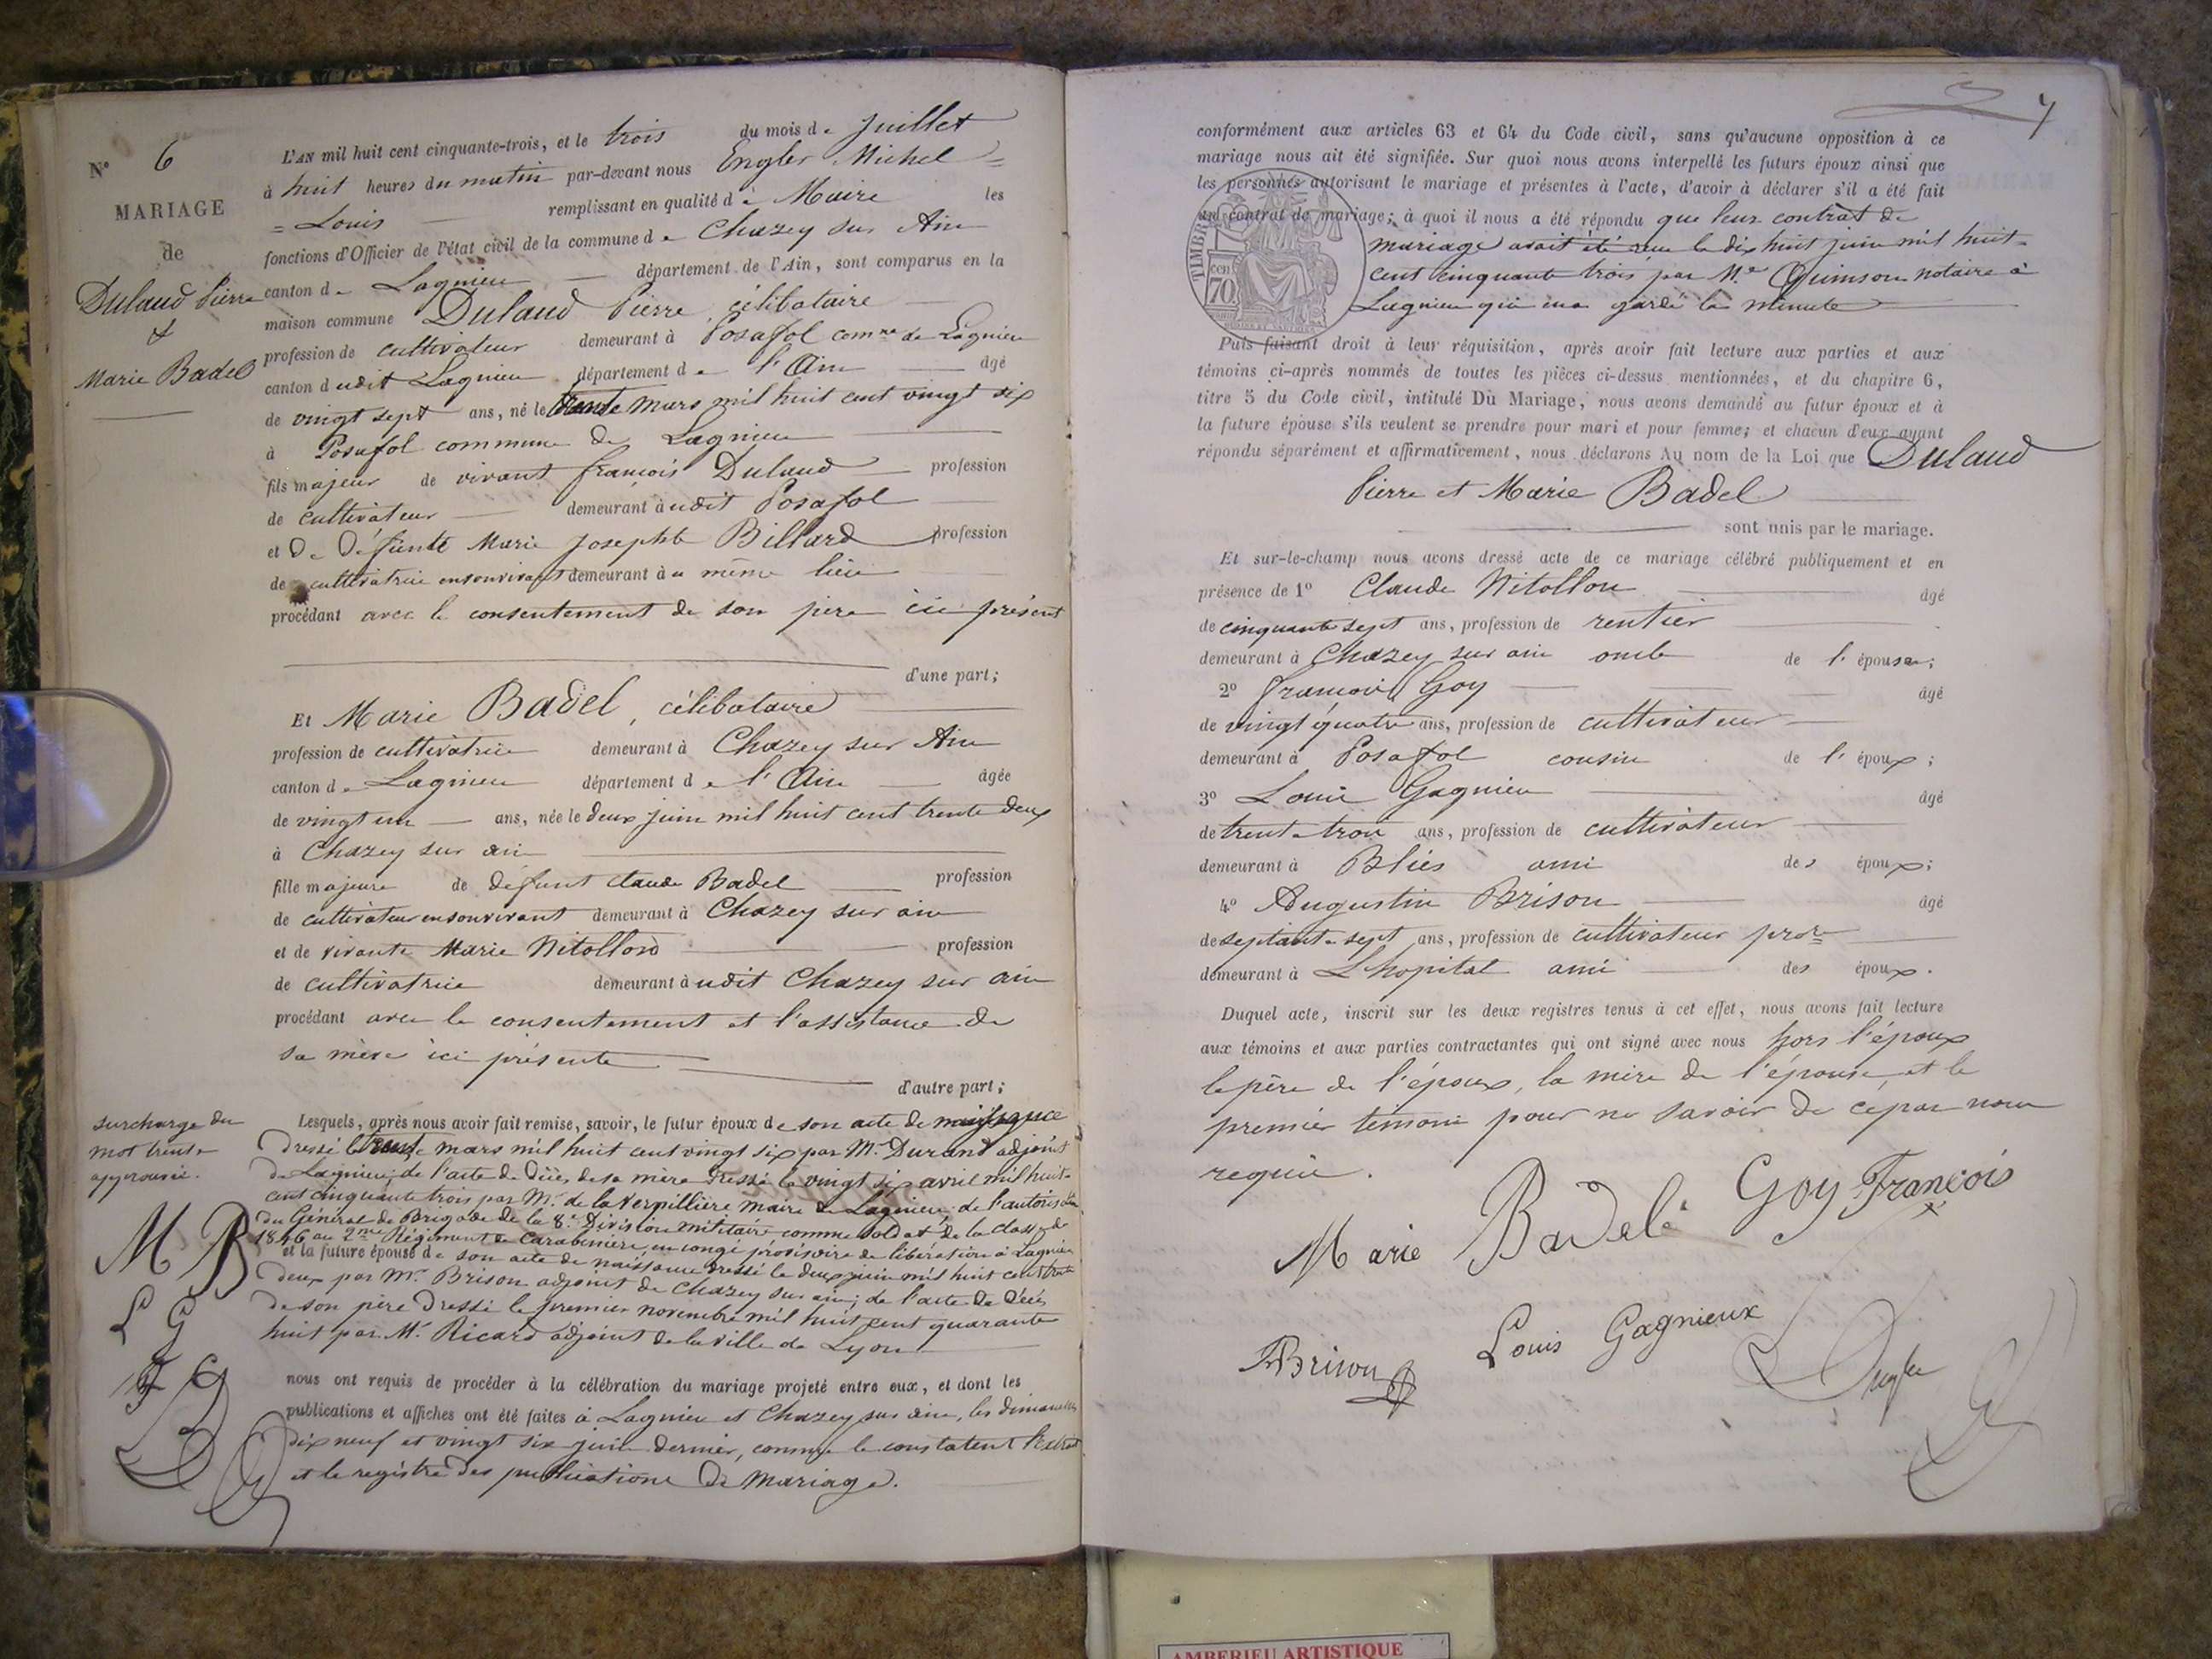 N° 6
MARIAGE
de
Dulaud Pierre
&
Marie Badel
L'AN mil huit cent cinquante-trois, et le trois du mois de Juillet
à huit heures du matin par-devant nous Engler Michel =
= Louis remplissant en qualité de Maire les
fonctions d'Officier de l'état civil de la commune de Chazey sur Ain
canton de Lagnieu département de l'Ain, sont comparus en la
maison commune Dulaud Pierre, célibataire
profession de cultivateur demeurant à Posafol comne de Lagnieu
canton dudit Lagnieu département de l'Ain âgé
de vingt sept ans, né le trente mars mil huit cent vingt six
à Posafol commune de Lagnieu
fils majeur de vivant françois Dulaud profession
de cultivateur demeurant audit Posafol
et de défunte Marie Josephte Billard profession
de cultivatrice en son vivant demeurant au même lieu
procédant avec le consentement de son père ici présent
d'une part;
Et Marie Badel, célibataire
profession de cultivatrice demeurant à Chazey sur Ain
canton de Lagnieu département de l'Ain âgée
de vingt un ans, née le deux juin mil huit cent trente deux
à Chazey sur ain
fille majeure de défunt Claude Badel profession
de cultivateur en son vivant demeurant à Chazey sur ain
et de vivante Marie Nitollon profession
de cultivatrice demeurant audit Chazey sur ain
procédant avec le consentement et l'assistance de
sa mère ici présente
d'autre part;
surcharge du
mot trente
approuvée.
M B
L G
F G
Lesquels, après nous avoir fait remise, savoir, le futur époux de son acte de naissance
dressé le trente mars mil huit cent vingt six par Mr. Durand adjoint
de Lagnieu; de l'acte de décès de sa mère dressé le vingt six avril mil huit-
cent cinquante trois par Mr. de la Verpillière maire de Lagnieu; de l'autorisation
du Général de Brigade de la 8e Division militaire comme soldat de la classe de
1846 au 2me Régiment de Carabiniers, en congé provisoire de libération à Lagnieu
et la future épouse de son acte de naissance dressé le deux juin mil huit cent trente
deux par Mr Brison adjoint de Chazey sur ain; de l'acte de décès
de son père dressé le premier novembre mil huit cent quarante
huit par Mr. Ricard adjoint de la ville de Lyon
nous ont requis de procéder à la célébration du mariage projeté entre eux, et dont les
publications et affiches ont été faites à Lagnieu et Chazey sur ain, les dimanches
dix neuf et vingt six juin dernier, comme le constatent l'extrait
et le registre des publications de mariage.
7
conformément aux articles 63 et 64 du Code civil, sans qu'aucune opposition à ce
mariage nous ait été signifiée. Sur quoi nous avons interpellé les futurs époux ainsi que
les personnes autorisant le mariage et présentes à l'acte, d'avoir à déclarer s'il a été fait
un contrat de mariage; à quoi il nous a été répondu que leur contrat de
mariage avait été reçu le dix huit juin mil huit-
cent cinquante trois par Me Quinson notaire à
Lagnieu qui en a gardé la minute
TIMBRE
cen
70.
Puis faisant droit à leur réquisition, après avoir fait lecture aux parties et aux
témoins ci-après nommés de toutes les pièces ci-dessus mentionnées, et du chapitre 6,
titre 5 du Code civil, intitulé DU MARIAGE, nous avons demandé au futur époux et à
la future épouse s'ils veulent se prendre pour mari et pour femme; et chacun d'eux ayant
répondu séparément et affirmativement, nous déclarons AU nom de la Loi que Dulaud
Pierre et Marie Badel
sont unis par le mariage.
Et sur-le-champ nous avons dressé acte de ce mariage célébré publiquement et en
présence de 1° Claude Nitollon âgé
de cinquante sept ans, profession de rentier
demeurant à Chazey sur ain oncle de l'épouse;
2° françois Goy âgé
de vingt quatre ans, profession de cultivateur
demeurant à Posafol cousin de l'époux;
3° Louis Gagnieu âgé
de trente trois ans, profession de cultivateur
demeurant à Bliés ami des époux;
4° Augustin Brison âgé
de septante sept ans, profession de cultivateur propre
demeurant à L'hopital ami des époux.
Duquel acte, inscrit sur les deux registres tenus à cet effet, nous avons fait lecture
aux témoins et aux parties contractantes qui ont signé avec nous hors l'époux
le père de l'époux, la mère de l'épouse, et le
premier témoin pour ne savoir de ce par nous
requis.
Marie Badel Goy François
ABrison Louis Gagnieux Engler
AMBERIEU ARTISTIQUE